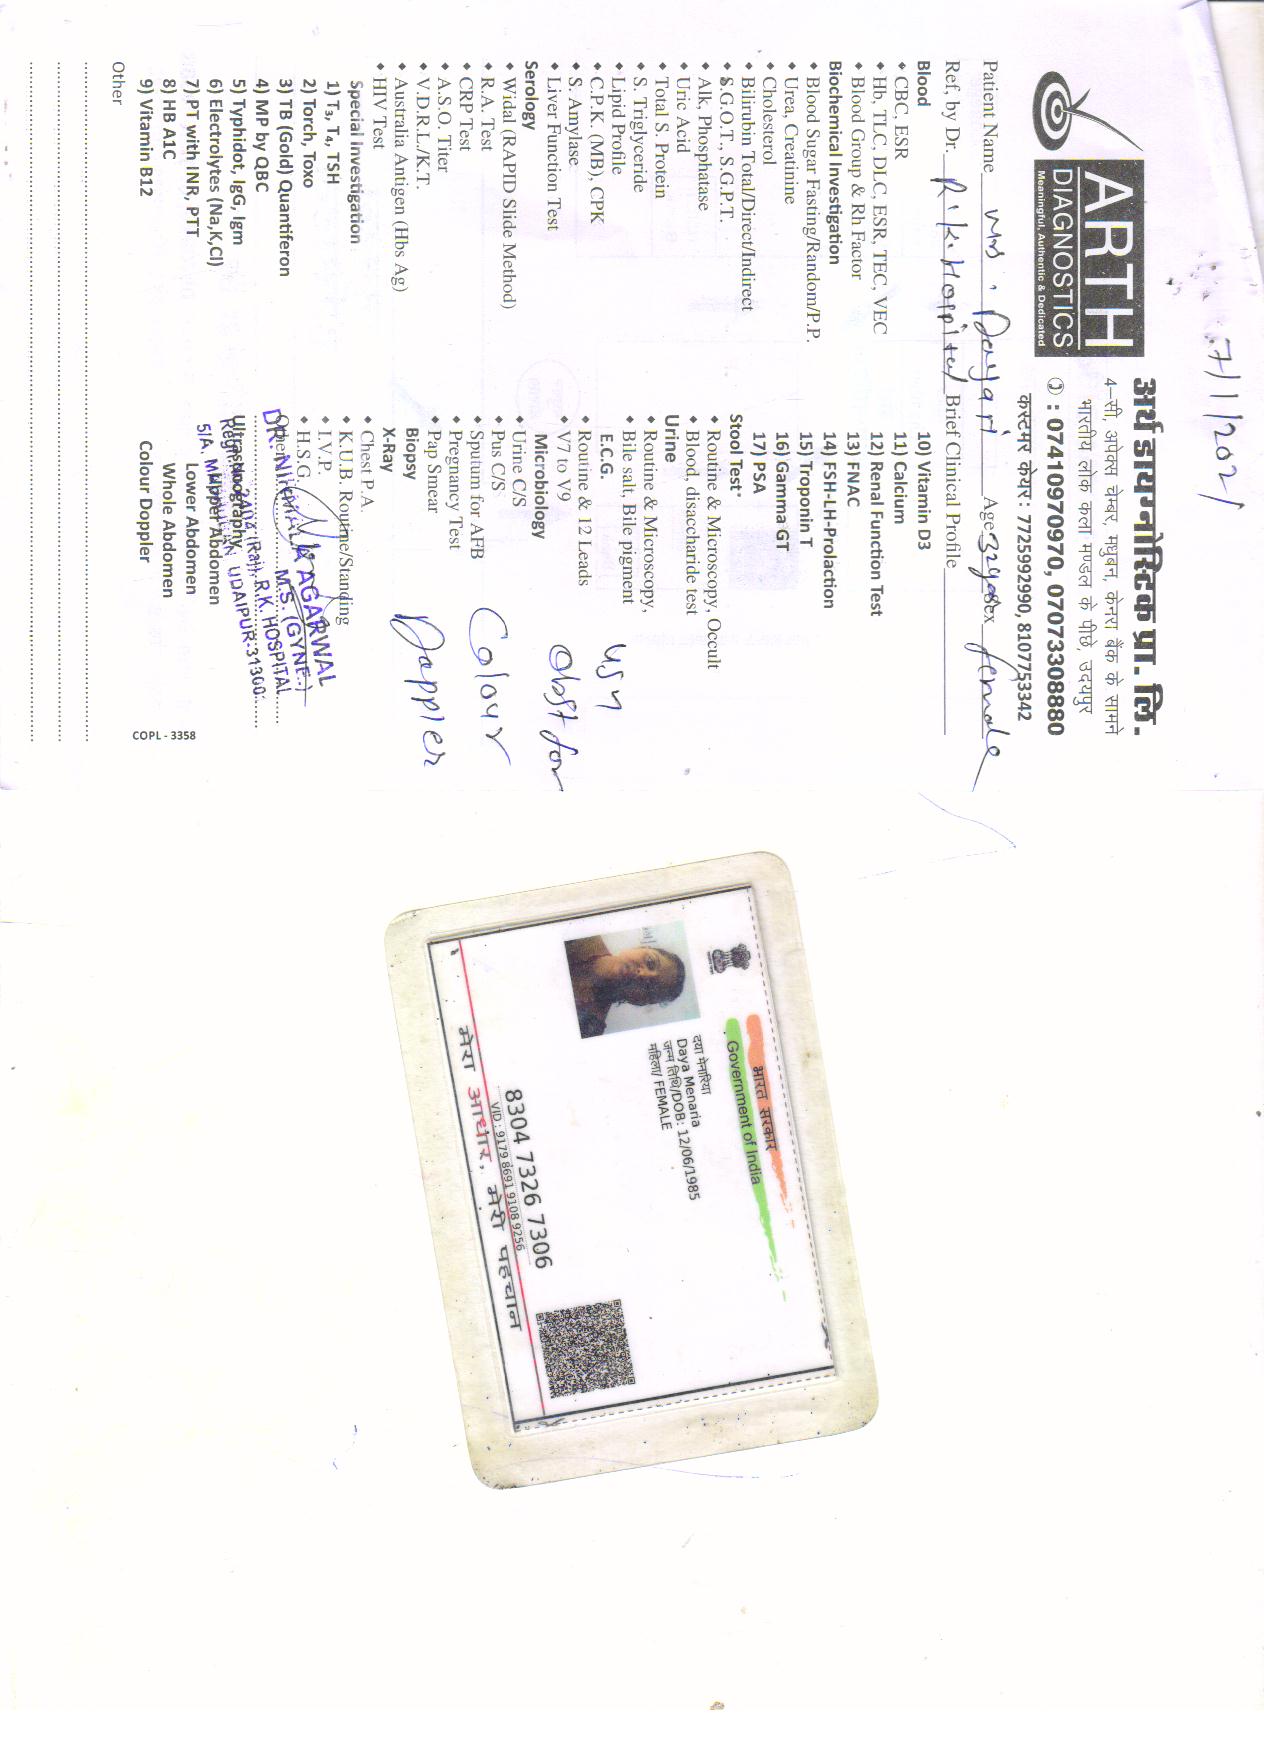 7/1/2021
ARTH
DIAGNOSTICS
Meaningful, Authentic & Dedicated
अर्थ डायग्नोस्टिक प्रा. लि.
4–सी, अपेक्स चेम्बर, मधुबन, केनरा बैंक के सामने
भारतीय लोक कला मण्डल के पीछे, उदयपुर
: 07410970970, 07073308880
कस्टमर केयर : 7725992990, 8107753342
Patient Name Mrs. Dayari Age 32 year Sex female
Ref, by Dr. R.K. Hospital Brief Clinical Profile
Blood
• CBC, ESR
• Hb, TLC, DLC, ESR, TEC, VEC
• Blood Group & Rh Factor
Biochemical Investigation
• Blood Sugar Fasting/Random/P.P.
• Urea, Creatinine
• Cholesterol
• Bilirubin Total/Direct/Indirect
• S.G.O.T., S.G.P.T.
• Alk, Phosphatase
• Uric Acid
• Total S. Protein
• S. Triglyceride
• Lipid Profile
• C.P.K. (MB), CPK
• S. Amylase
• Liver Function Test
Serology
• Widal (RAPID Slide Method)
• R.A. Test
• CRP Test
• A.S.O. Titer
• V.D.R.L./K.T.
• Australia Antigen (Hbs Ag)
• HIV Test
Special Investigation
1) T₃, T₄, TSH
2) Torch, Toxo
3) TB (Gold) Quantiferon
4) MP by QBC
5) Typhidot, IgG, Igm
6) Electrolytes (Na,K,Cl)
7) PT with INR, PTT
8) HB A1C
9) Vitamin B12
Other
10) Vitamin D3
11) Calcium
12) Renal Function Test
13) FNAC
14) FSH-LH-Prolaction
15) Troponin T
16) Gamma GT
17) PSA
Stool Test
• Routine & Microscopy, Occult
• Blood, disaccharide test
Urine
• Routine & Microscopy,
• Bile salt, Bile pigment
E.C.G.
• Routine & 12 Leads
• V7 to V9
Microbiology
• Urine C/S
• Pus C/S
• Sputum for AFB
• Pregnancy Test
• Pap Smear
Biopsy
X-Ray
• Chest P.A.
• K.U.B. Routine/Standing
• I.V.P.
• H.S.G.
Ultrasonography
Upper Abdomen
Lower Abdomen
Whole Abdomen
Colour Doppler
USG
Obst for
Colour
Doppler
AGARWAL
M.S. (GYNE.)
2404 (Raj), R.K. HOSPITAL
5/A, UDAIPUR-31300
COPL - 3358
भारत सरकार
Government of India
दया मेनारिया
Daya Menaria
जन्म तिथि/DOB: 12/06/1985
महिला/ FEMALE
8304 7326 7306
VID : 9179 8691 9108 9256
मेरा आधार, मेरी पहचान